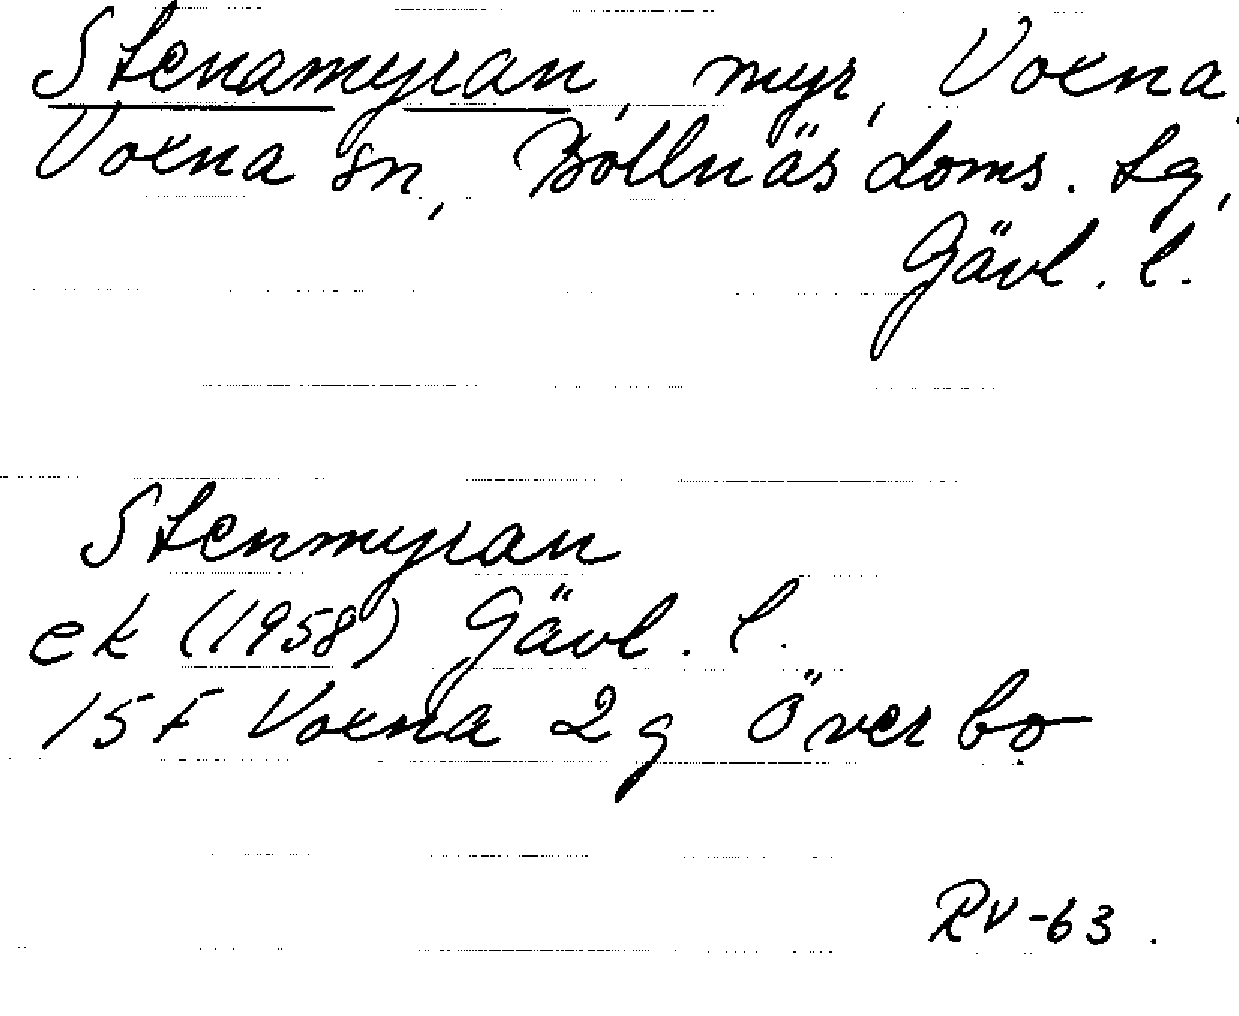 Stenamyran, myr, Voxna,
Voxna sn, Bollnäs doms. lg,
Gävl. l.
Stenmyran
ek (1958) Gävl. l.
15F Voxna 2g Överbo
RV-63.